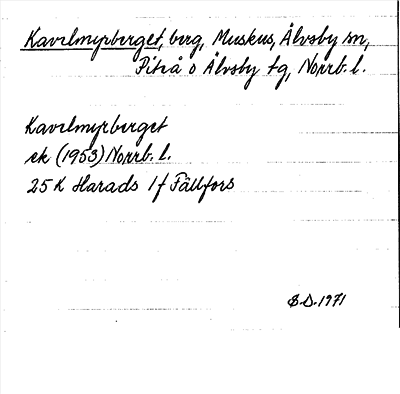 Kavelmyrberget, berg, Muskus, Älvsby sn,
Piteå o Älvsby tg, Norrb. l.
Kavelmyrberget
ek (1953) Norrb. l.
25 K Harads 1 f Fällfors
B.D. 1971